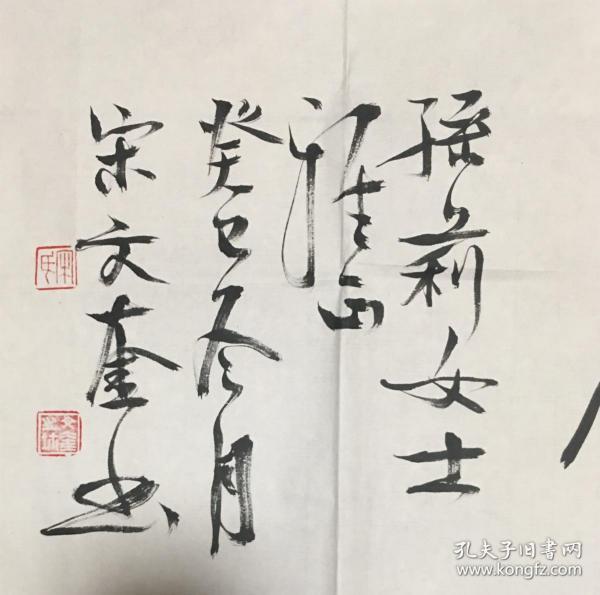 孙莉女士
雅正
癸巳冬月
宋文奎书
宋氏
孔夫子旧书网
www.kongfz.com